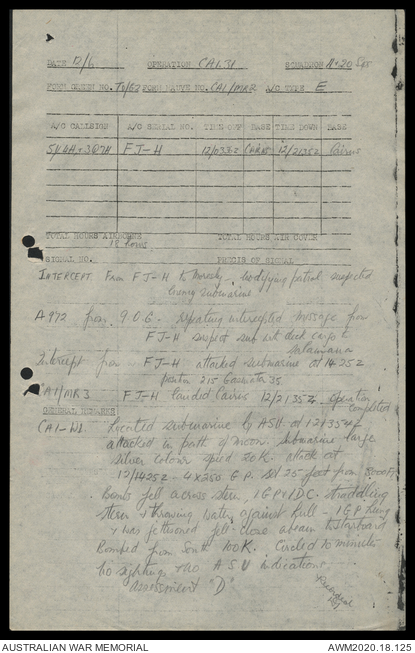 DATE 12/6 OPERATION CA1.31 SQUADRON No 20 Sqn
FORM GREEN NO. T1/E2 FORM MAUVE NO. CA1/MR2 A/C TYPE E
A/C CALLSIGN A/C SERIAL NO. TIME OFF BASE TIME DOWN BASE
5V4H+3Q7H FJ-H 12/0336Z CAIRNS 12/2135Z Cairns
TOTAL HOURS AIRBORNE TOTAL HOURS AIR COVER
18 hours
SIGNAL NO. PRECIS OF SIGNAL
INTERCEPT From FJ-H to Moresby. modifying patrol suspected
enemy submarine
A972 from 9.O.G. repeating intercepted message from
FJ-H suspect sub wet deck cargo to
Salamaua
Intercept from FJ-H attacked submarine at 1425Z
position 215 Gasmata 35
CA1/MR3 FJ-H landed Cairns 12/2135Z operation
completed
GENERAL REMARKS
CA1-W1. Located submarine by ASV. at 12/1354Z
attacked in path of moon. submarine large
silver colour speed 20K. attack at
12/1425Z - 4x250 G.P. set 25 feet from
Bombs fell across stern, 1 GP 1 DC. straddling
stern + throwing water against hull - 1 GP hung
+ was jettisoned fell close abeam to starboard
Bombed from South 100K. Circled 10 minutes
No sighting + no ASV indications.
assessment "D"
AUSTRALIAN WAR MEMORIAL AWM2020.18.125